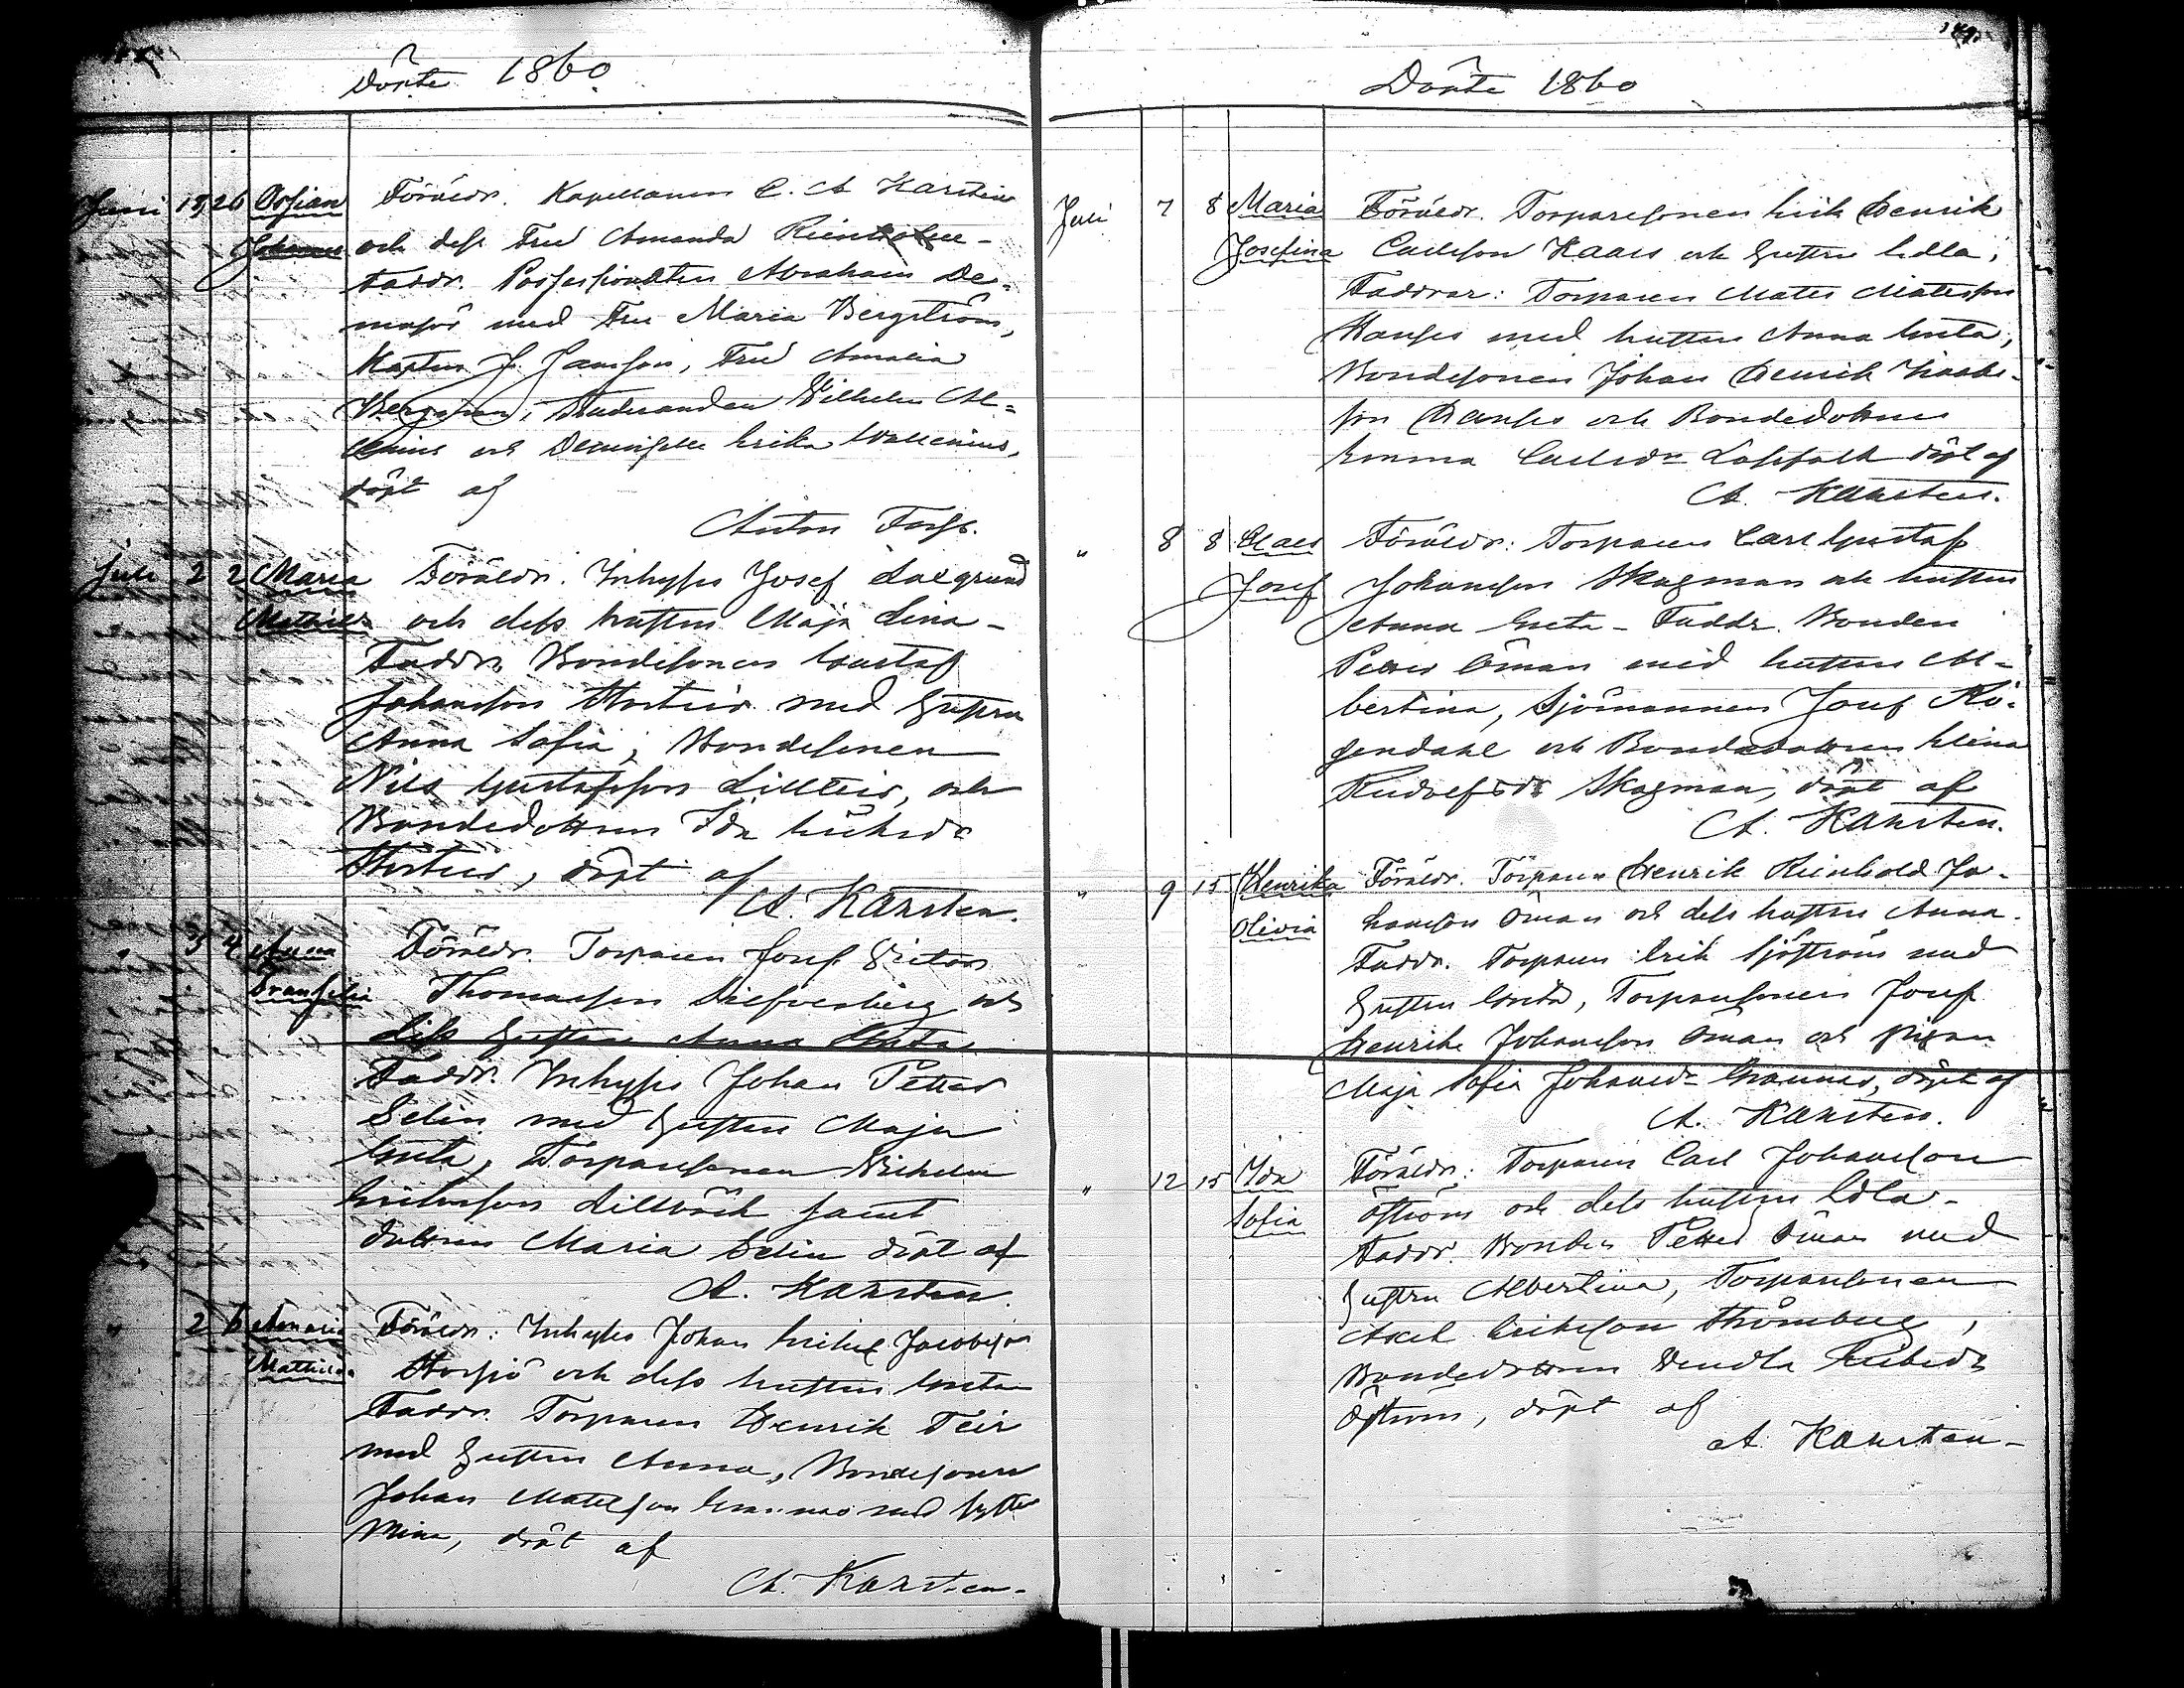 Döpte 1860
Juni 18 26 Ossian Johannes
Föräldr. Kapellanen C. A Karsten
och dess Fru Amanda
Faddr. Possessionaten Abraham De-
 med Fru Maria Bergström,
Kapten J. Jansson, Fru Amalia
Bergman, Studeranden Wilhelm Al-
 och Demoiselle Erika Wallenius,
döpt af
Anton
Juli 2 2 Maria Mathilda
Föräldr. Inhyses Josef Dalgrund
och dess hustru Maja Lina -
Faddr. Bondesonen Gustaf
Johansson Storteir med hustru
Anna Sofia, Bondesonen
Nils Gustafsson Lillteir, och
Bondedottren Ida Eriksdr
Storteir, döpt af
A. Karsten.
" 3 4 Anna Transilia
Föräldr. Torparen Josef Victor
Thomasson och
dess hustru Anna Greta
Faddr. Inhyses Johan Petter
Selin med hustru Maja
Greta, Torparesonen Wilhelm
Eriksson samt
dottren Maria Selin döpt af
A. Karsten.
" 2 6 Amalia Mathilda
Föräldr: Inhyses Johan Eriksson Jacobsson
Storsjö och dess hustru Greta
Faddr. Torparen Henrik Teir
med hustru Anna, Bondesonen
Johan Matsson Grannas med hustru
Mina, döpt af
A. Karsten.
Döpte 1860
Juli 7 8 Maria Josefina
Föräldr. Torparesonen Erik Henrik
Carlsson Kaars och hustru Edla;
Faddrar: Torparen Mats Matsson
 med hustru Anna Greta;
Bondesonen Johan Henrik
 och Bondedottren
Emma Carlsdr döpt af
A. Karsten.
" 8 8 Claes Josef
Föräldr: Torparen Carl Gustaf
Johansson Skagman och hustru
Anna Greta - Faddr. Bonden
Petter Öman med hustru Al-
bertina, Sjömannen Josef Rö-
gendahl och Bondedottren Elina
Rudolfsdr Skagman, döpt af
A. Karsten.
" 9 15 Henrika Olivia
Föräldr. Torparen Henrik Reinhold Jo-
hansson Öman och dess hustru Anna.
Faddr. Torparen Erik Sjöström med
hustru Greta, Torparesonen Josef
Henrik Johansson Öman och pigan
Maja Sofia Johansdr Grannas, döpt af
A. Karsten.
" 12 15 Ida Sofia
Föräldr: Torparen Carl Johansson
Öström och dess hustru Edla -
Faddr. Bonden Petter Öman med
hustru Albertina, Torparesonen
Axel Eriksson Strömberg,
Bondedottren Wendla Eriksdr
Öström, döpt af
A. Karsten -